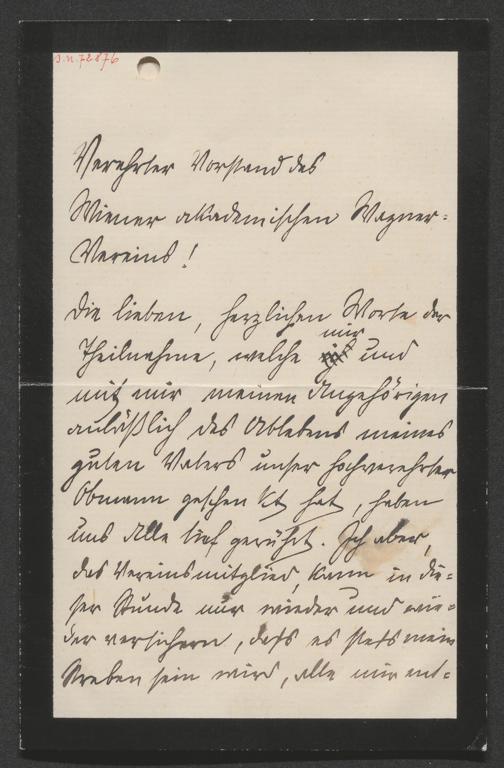 J.N. 72876
Verehrter Vorstand des
Wiener akademischen Wagner=
Vereins!
Die lieben, herzlichen Worte der
mir
Theilnahme, welche und
mit mir meinen Angehörigen
anläßlich des Ablebens meines
guten Vaters unser hochverehrter
Obmann geschenkt hat, haben
uns Alle tief gerührt. Ich aber,
das Vereinsmitglied, kann in die=
ser Stunde nur wieder und wie=
der versichern, daß es stets mein
Streben sein wird, alle mir ent=